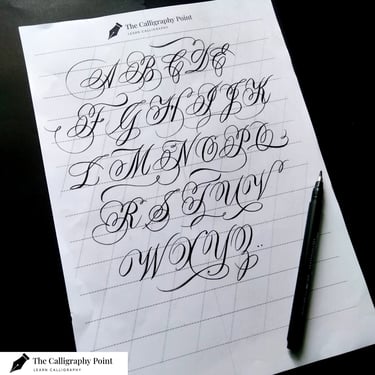 The Calligraphy Point
LEARN CALLIGRAPHY
A B C D E
F G H I J K
L M N O P Q
R S T U V
W X Y Z
The Calligraphy Point
LEARN CALLIGRAPHY